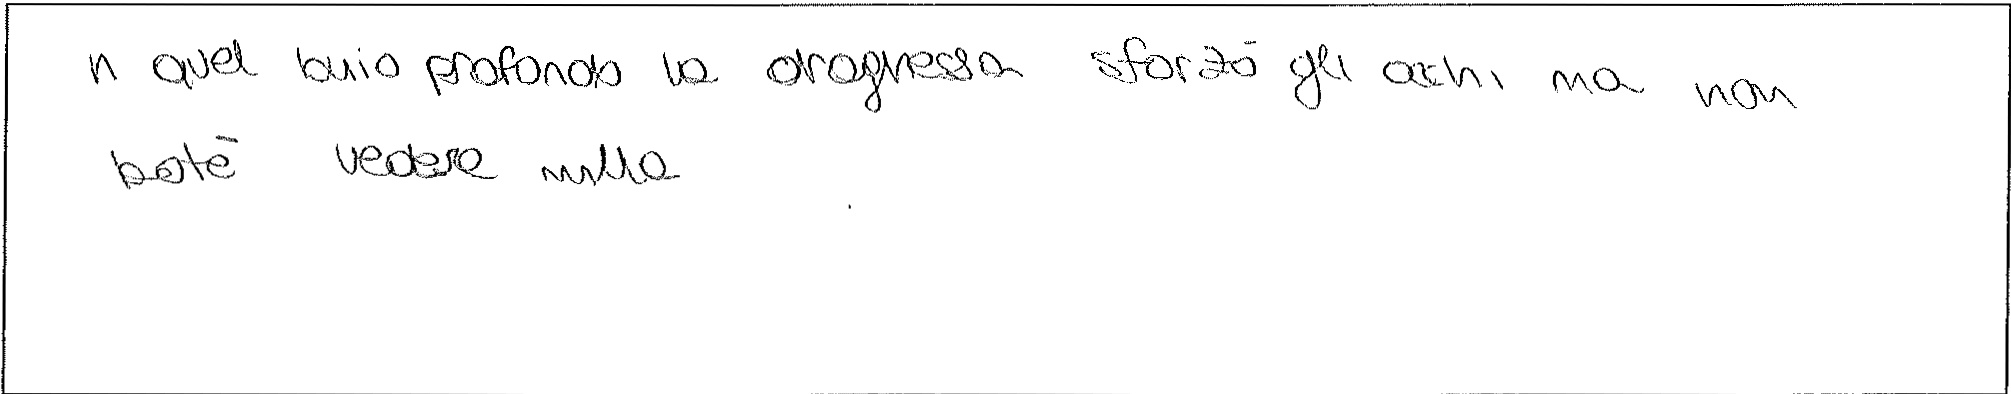 n quel buio profondo la draghessa sforzò gli occhi ma non
potè vedere nulla